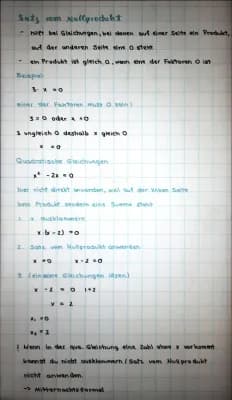 Satz vom Nullprodukt
- hilft bei Gleichungen, bei denen auf einer Seite ein Produkt,
auf der anderen Seite eine 0 steht.
- ein Produkt ist gleich 0, wenn eine der Faktoren 0 ist
Beispiel:
3 · x = 0
einer der Faktoren muss 0 sein!
3 = 0 oder x = 0
3 ungleich 0 deshalb x gleich 0
x = 0
Quadratische Gleichungen
x² - 2x = 0
hier nicht direkt anwenden, weil auf der linken Seite
kein Produkt sondern eine Summe steht
1. x ausklammern
x · (x - 2) = 0
2. Satz vom Nullprodukt anwenden
x = 0 x - 2 = 0
3. (einzelne Gleichungen lösen)
x - 2 = 0 | + 2
x = 2
x₁ = 0
x₂ = 2
! Wenn in der qua. Gleichung eine Zahl ohne x vorkommt
kannst du nicht ausklammern / Satz vom Nullprodukt
nicht anwenden.
→ Mitternachtsformel